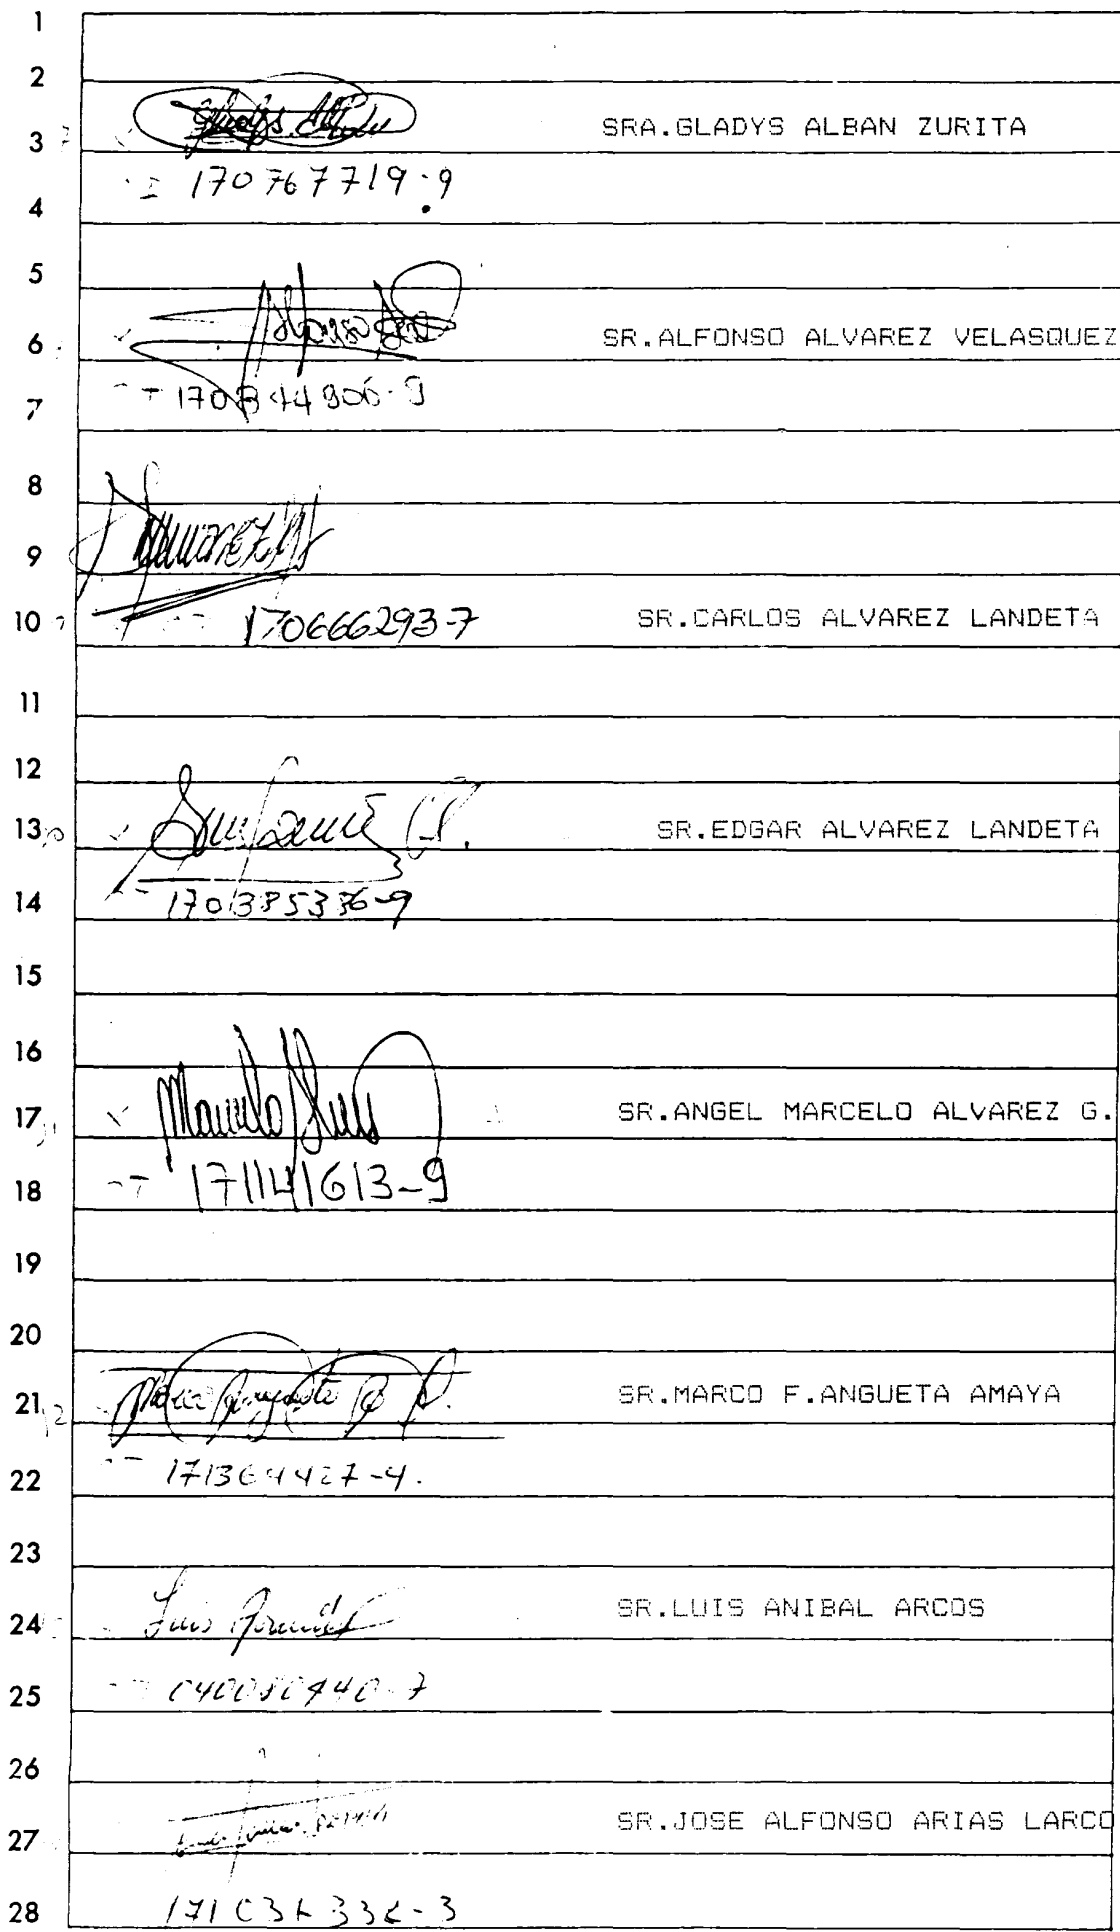 1
2
Gladys Alban
3 SRA.GLADYS ALBAN ZURITA
170767719-9
4
5
Alfonso
6 SR.ALFONSO ALVAREZ VELASQUEZ
7
8
9
10 170666293-7 SR.CARLOS ALVAREZ LANDETA
11
12
13 SR.EDGAR ALVAREZ LANDETA
170385336-9
14
15
16
17 Marcelo SR.ANGEL MARCELO ALVAREZ G.
18 171141613-9
19
20
21 Marco SR.MARCO F.ANGUETA AMAYA
171364427-4.
22
23
24 Luis SR.LUIS ANIBAL ARCOS
25 040080440-7
26
27 SR.JOSE ALFONSO ARIAS LARCO
28